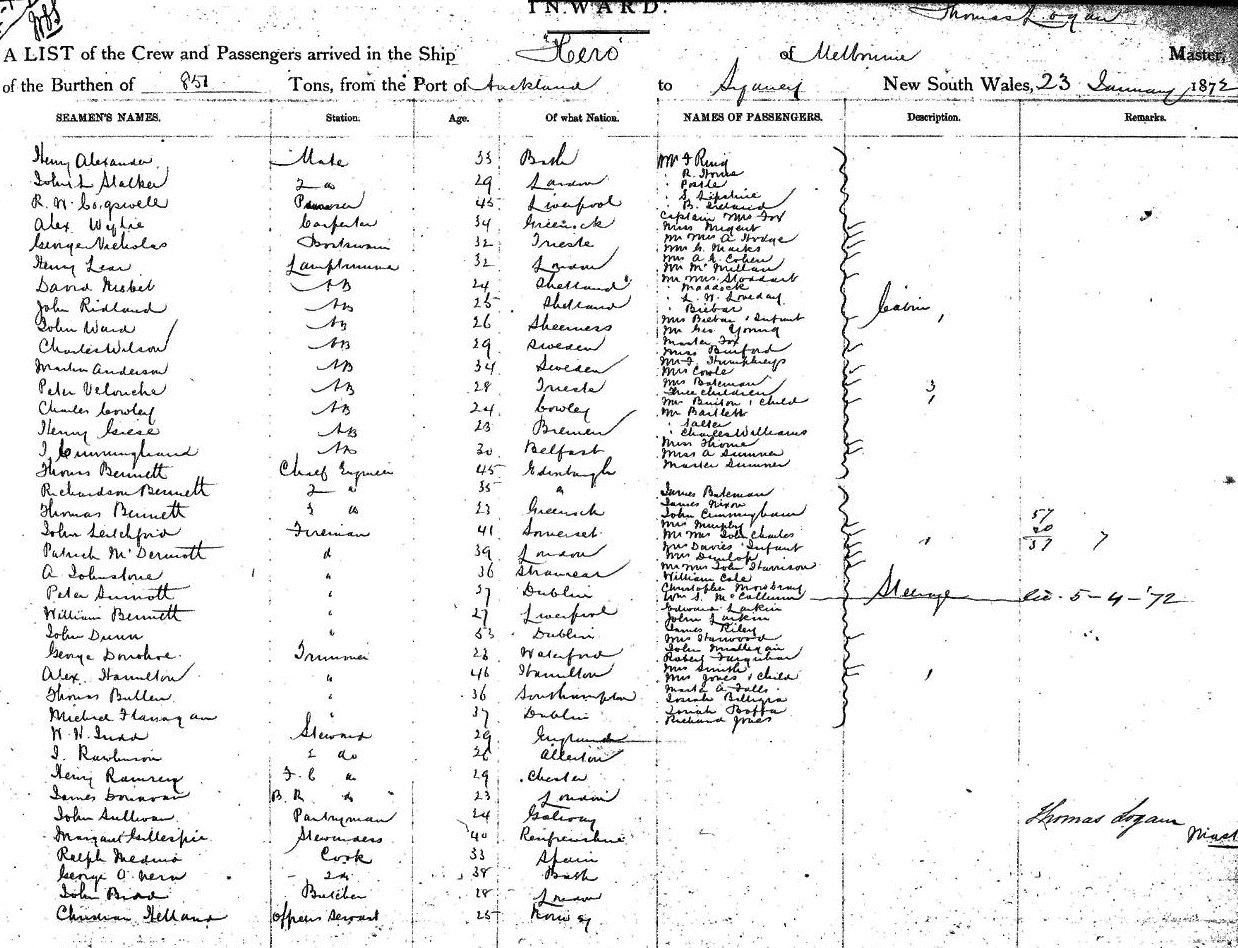 INWARD.
Thomas Logan
A LIST of the Crew and Passengers arrived in the Ship "Hero" of Melbourne Master,
of the Burthen of 851 Tons, from the Port of Auckland to Sydney New South Wales, 23 January 1872
SEAMEN'S NAMES. Station. Age. Of what Nation. NAMES OF PASSENGERS. Description. Remarks.
Henry Alexander Mate 33 Bath
John L Stalker 2 do 29 London
R. W. Cogswell 45 Liverpool
Alex Wylie Carpenter 34 Greenock
George Nicholas Boatswain 32 Trieste
Henry Lear Lamptrimmer 32 London
David Nisbet AB 24 Shetland
John Ridland AB 25 Shetland
John Ward AB 26 Sheerness
Charles Wilson AB 29 Sweden
Martin Anderson AB 34 Sweden
Peter Velonche AB 28 Trieste
Charles Cowley AB 24 Cowley
Henry Giese AB 23 Bremen
J Cunningham AB 30 Belfast
Thomas Bennett Chief Engineer 45 Edinburgh
Richardson Bennett 2 " 35 "
Thomas Bennett 3 " 23 Greenock
John Letchford Fireman 41 Somerset
Patrick McDermott d 39 London
A Johnstone " 36 Stranraer
Peter Sinnott " 37 Dublin
William Bennett " 27 Liverpool
John Dunn " 53 Dublin
George Donohoe Trimmer 23 Waterford
Alex. Hamilton " 46 Hamilton
Thomas Bullen " 36 Southampton
Michael Flanagan " 37 Dublin
W. W. Judd Steward 29 England
J. Rawlinson 2 do 26 Allerton
Henry Ramsey F. C do 29 Chester
James Donovan B. R. do 23 London
John Sullivan Pantryman 24 Galway
Margaret Gillespie Stewardess 40 Renfrewshire
Ralph Medina Cook 33 Spain
George O. Vern 2 do 38 Bath
John Brad Butcher 28 London
Christian Helland Officers Servant 25 Norway
Mr F Ring
" R. Horne
" S. Lipstine
" B. Ireland
Captain Mrs Fox
Miss Nugent
Mr Mrs A Hodge
Mrs G. Marks
Mrs A. K. Cohen
Mr McMillan
Mr Mrs Stoddart
" Maddock
" L. W. Loveday
" Biebar
Mrs Biebar & Infant
Mr Geo Young
Master Fox
Miss Burford
Mr J. Humphreys
Mrs Cowle
Mrs Bateman
Three children
Mr Burton & Child
Mr Bartlett
" Salter
" Charles Williams
Miss Thorne
Miss A Sumner
Master Sumner
Cabin
3
James Bateman
James Nixon
John Cunningham
Mrs Murphy
Mr Mrs John Charles
Mrs Davies & Infant
Mrs Dunlop
Mr Mrs John Harrison
William Cole
Christopher Mowbray
Wm S. McCallum
Edward Larkin
John Larkin
James Riley
Mrs Harwood
John Mullegan
Robert Farquhar
Mrs Smith
Mrs Jones & Child
Mark A Falls
Josiah Billgra
Josiah Boffa
Richard Jones
Steerage
57
20
37 7
5-4-'72
Thomas Logan
Mast